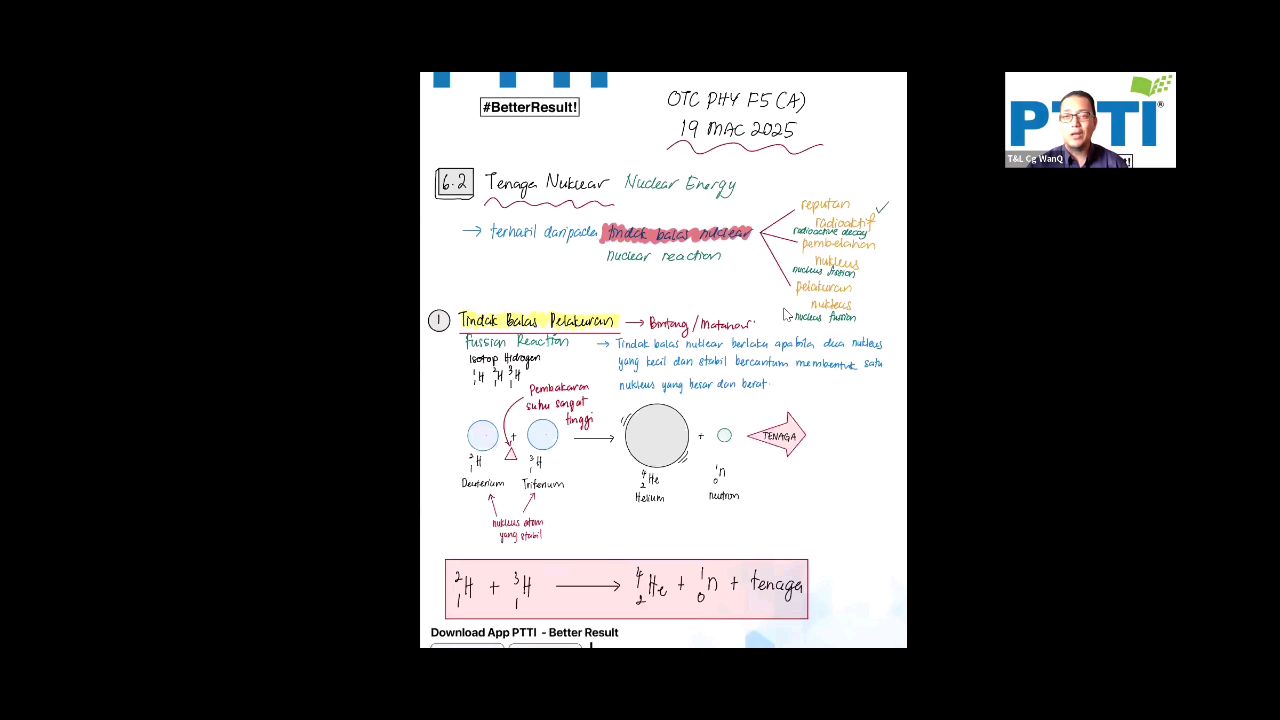 #BetterResult!
OTC PHY F5 (A)
19 MAC 2025
PTTI®
T&L Cg WanQ
6.2 Tenaga Nuklear Nuclear Energy
→ terhasil daripada tindak balas nuclear
nuclear reaction
reputan
radioaktif ✓
radioactive decay
pembelahan
nukleus
nucleus fission
pelakuran
nukleus
nucleus fussion
1 Tindak Balas Pelakuran → Bintang / Matahari
Fussion Reaction
→ Tindak balas nuklear berlaku apabila dua nukleus
yang kecil dan stabil bercantum membentuk satu
nukleus yang besar dan berat.
Isotop Hidrogen
¹₁H ²₁H ³₁H
Pembakaran
suhu sangat
tinggi
+ → + TENAGA
²₁H ³₁H ⁴₂He ¹₀n
Deuterium Tritenium Helium neutron
nukleus atom
yang stabil
²₁H + ³₁H → ⁴₂He + ¹₀n + tenaga
Download App PTTI - Better Result